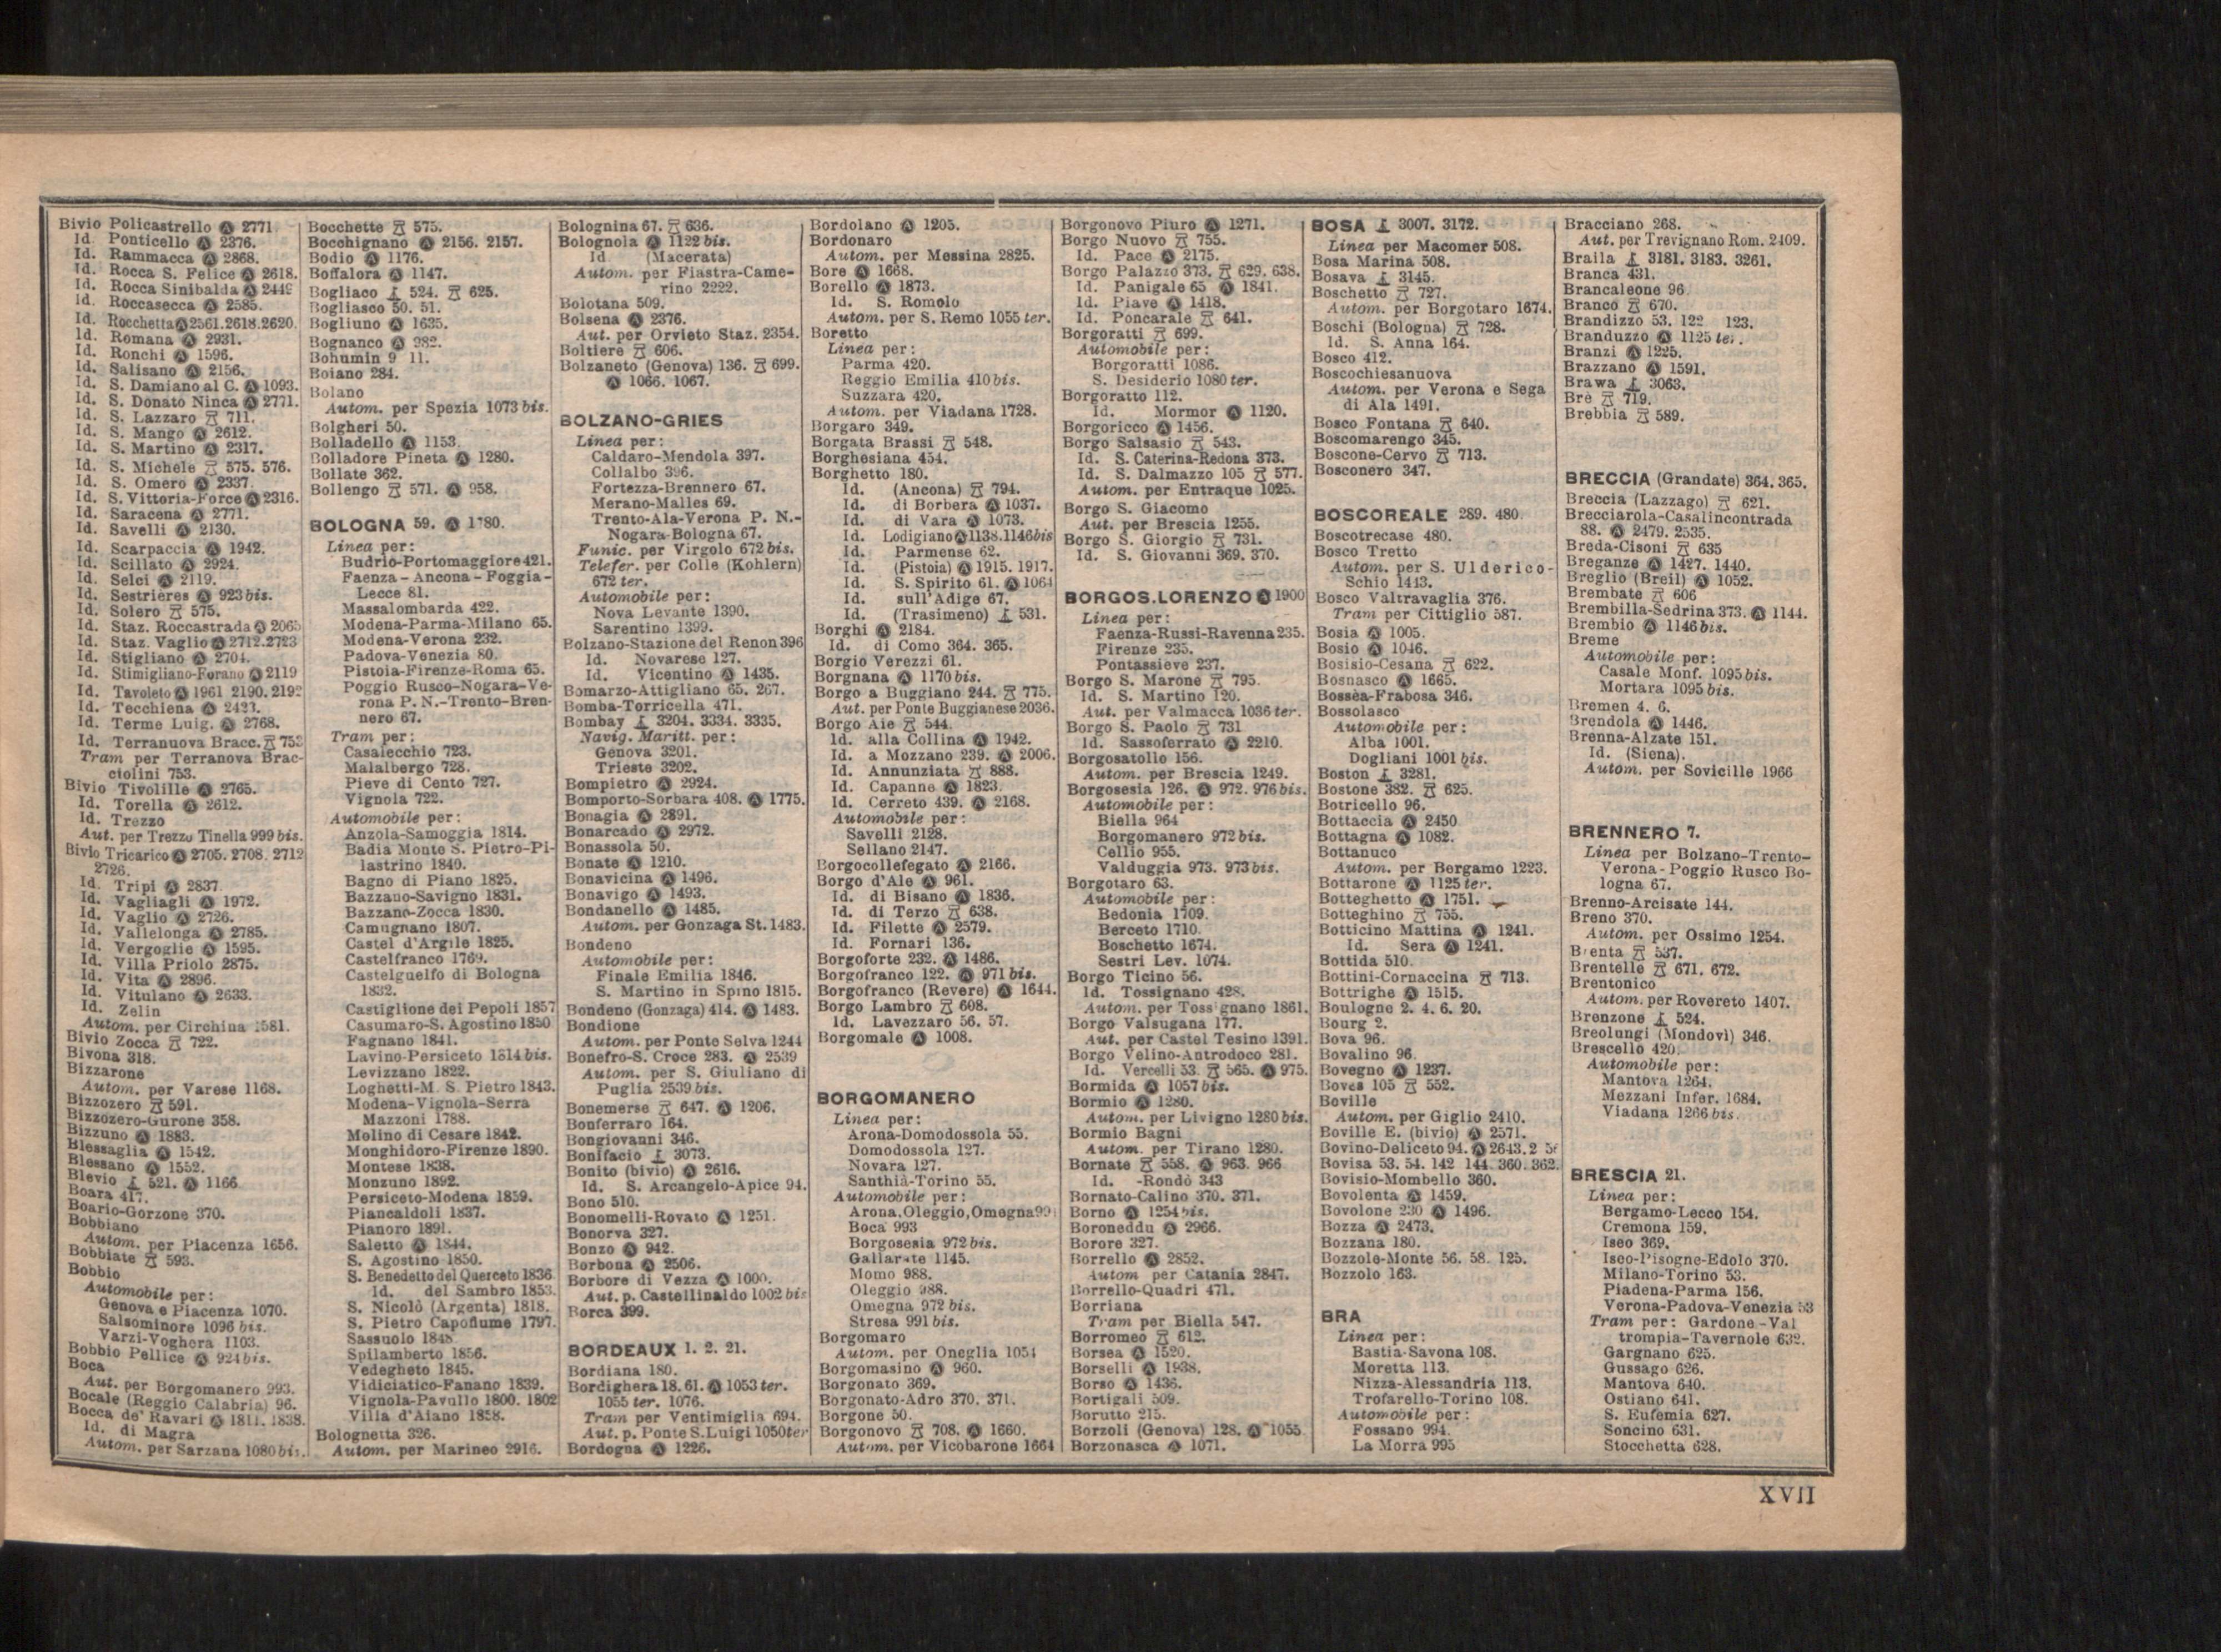 Bivio Policastrello Ⓐ 2771
Id. Ponticello Ⓐ 2376.
Id. Rammacca Ⓐ 2868.
Id. Rocca S. Felice Ⓐ 2618.
Id. Rocca Sinibalda Ⓐ 2449
Id. Roccasecca Ⓐ 2585.
Id. Rocchetta Ⓐ 2561.2618.2620.
Id. Romana Ⓐ 2931.
Id. Ronchi Ⓐ 1596.
Id. Salisano Ⓐ 2156.
Id. S. Damiano al C. Ⓐ 1093.
Id. S. Donato Ninca Ⓐ 2771.
Id. S. Lazzaro 711.
Id. S. Mango Ⓐ 2612.
Id. S. Martino Ⓐ 2317.
Id. S. Michele 575. 576.
Id. S. Omero Ⓐ 2337.
Id. S. Vittoria-Force Ⓐ 2316.
Id. Saracena Ⓐ 2771.
Id. Savelli Ⓐ 2130.
Id. Scarpaccia Ⓐ 1942.
Id. Scillato Ⓐ 2924.
Id. Selci Ⓐ 2119.
Id. Sestrières Ⓐ 923 bis.
Id. Solero 575.
Id. Staz. Roccastrada Ⓐ 2065
Id. Staz. Vaglio Ⓐ 2712.2723
Id. Stigliano Ⓐ 2704.
Id. Stimigliano-Forano Ⓐ 2119
Id. Tavoleto Ⓐ 1961 2190. 2192
Id. Tecchiena Ⓐ 2423.
Id. Terme Luig. Ⓐ 2768.
Id. Terranuova Bracc. 753
Tram per Terranova Brac-
ciolini 753.
Bivio Tivolille Ⓐ 2765.
Id. Torella Ⓐ 2612.
Id. Trezzo
Aut. per Trezzo Tinella 999 bis.
Bivio Tricarico Ⓐ 2705. 2708. 2712
2726.
Id. Tripi Ⓐ 2837.
Id. Vagliagli Ⓐ 1972.
Id. Vaglio Ⓐ 2726.
Id. Vallelonga Ⓐ 2785.
Id. Vergoglie Ⓐ 1595.
Id. Villa Priolo 2875.
Id. Vita Ⓐ 2896.
Id. Vitulano Ⓐ 2633.
Id. Zelin
Autom. per Circhina 1581.
Bivio Zocca 722.
Bivona 318.
Bizzarone
Autom. per Varese 1168.
Bizzozero 591.
Bizzozero-Gurone 358.
Bizzuno Ⓐ 1883.
Blessaglia Ⓐ 1542.
Blessano Ⓐ 1552.
Blevio 521. Ⓐ 1166
Boara 417.
Boario-Gorzone 370.
Bobbiano
Autom. per Piacenza 1656.
Bobbiate 593.
Bobbio
Automobile per:
Genova e Piacenza 1070.
Salsominore 1096 bis.
Varzi-Voghera 1103.
Bobbio Pellice Ⓐ 924 bis.
Boca
Aut. per Borgomanero 993.
Bocale (Reggio Calabria) 96.
Bocca de' Ravari Ⓐ 1811. 1838.
Id. di Magra
Autom. per Sarzana 1080 bis.
Bocchette 575.
Bocchignano Ⓐ 2156. 2157.
Bodio Ⓐ 1176.
Boffalora Ⓐ 1147.
Bogliaco 524. 625.
Bogliasco 50. 51.
Bogliuno Ⓐ 1635.
Bognanco Ⓐ 982.
Bohumin 9 11.
Boiano 284.
Bolano
Autom. per Spezia 1073 bis.
Bolgheri 50.
Bolladello Ⓐ 1153.
Bolladore Pineta Ⓐ 1280.
Bollate 362.
Bollengo 571. Ⓐ 958.
BOLOGNA 59. Ⓐ 1780.
Linea per:
Budrio-Portomaggiore 421.
Faenza - Ancona - Foggia-
Lecce 81.
Massalombarda 422.
Modena-Parma-Milano 65.
Modena-Verona 232.
Padova-Venezia 80.
Pistoia-Firenze-Roma 65.
Poggio Rusco-Nogara-Ve-
rona P. N.-Trento-Bren-
nero 67.
Tram per:
Casalecchio 723.
Malalbergo 728.
Pieve di Cento 727.
Vignola 722.
Automobile per:
Anzola-Samoggia 1814.
Badia Monte S. Pietro-Pi-
lastrino 1840.
Bagno di Piano 1825.
Bazzano-Savigno 1831.
Bazzano-Zocca 1830.
Camugnano 1807.
Castel d'Argile 1825.
Castelfranco 1769.
Castelguelfo di Bologna
1832.
Castiglione dei Pepoli 1857
Casumaro-S. Agostino 1850
Fagnano 1841.
Lavino-Persiceto 1814 bis.
Levizzano 1822.
Loghetti-M. S. Pietro 1843.
Modena-Vignola-Serra
Mazzoni 1788.
Molino di Cesare 1842.
Monghidoro-Firenze 1890.
Montese 1838.
Monzuno 1892.
Persiceto-Modena 1859.
Piancaldoli 1837.
Pianoro 1891.
Saletto Ⓐ 1844.
S. Agostino 1850.
S. Benedetto del Querceto 1836
Id. del Sambro 1853.
S. Nicolò (Argenta) 1818.
S. Pietro Capofiume 1797.
Sassuolo 1848
Spilamberto 1856.
Vedegheto 1845.
Vidiciatico-Fanano 1839.
Vignola-Pavullo 1800. 1802
Villa d'Aiano 1858.
Bolognetta 326.
Autom. per Marineo 2916.
Bolognina 67. 636.
Bolognola Ⓐ 1122 bis.
Id (Macerata)
Autom. per Fiastra-Came-
rino 2222.
Bolotana 509.
Bolsena Ⓐ 2376.
Aut. per Orvieto Staz. 2354.
Boltiere 606.
Bolzaneto (Genova) 136. 699.
Ⓐ 1066. 1067.
BOLZANO-GRIES
Linea per:
Caldaro-Mendola 397.
Collalbo 396.
Fortezza-Brennero 67.
Merano-Malles 69.
Trento-Ala-Verona P. N.-
Nogara-Bologna 67.
Funic. per Virgolo 672 bis.
Telefer. per Colle (Kohlern)
672 ter.
Automobile per:
Nova Levante 1390.
Sarentino 1399.
Bolzano-Stazione del Renon 396
Id. Novarese 127.
Id. Vicentino Ⓐ 1435.
Bomarzo-Attigliano 65. 267.
Bomba-Torricella 471.
Bombay 3204. 3334. 3335.
Navig. Maritt. per:
Genova 3201.
Trieste 3202.
Bompietro Ⓐ 2924.
Bomporto-Sorbara 408. Ⓐ 1775.
Bonagia Ⓐ 2891.
Bonarcado Ⓐ 2972.
Bonassola 50.
Bonate Ⓐ 1210.
Bonavicina Ⓐ 1496.
Bonavigo Ⓐ 1493.
Bondanello Ⓐ 1485.
Autom. per Gonzaga St. 1483.
Bondeno
Automobile per:
Finale Emilia 1846.
S. Martino in Spino 1815.
Bondeno (Gonzaga) 414. Ⓐ 1483.
Bondione
Autom. per Ponte Selva 1244
Bonefro-S. Croce 283. Ⓐ 2539
Autom. per S. Giuliano di
Puglia 2539 bis.
Bonemerse 647. Ⓐ 1206.
Bonferraro 164.
Bongiovanni 346.
Bonifacio 3073.
Bonito (bivio) Ⓐ 2616.
Id. S. Arcangelo-Apice 94.
Bono 510.
Bonomelli-Rovato Ⓐ 1251.
Bonorva 327.
Bonzo Ⓐ 942.
Borbona Ⓐ 2506.
Borbore di Vezza Ⓐ 1000.
Aut. p. Castellinaldo 1002 bis
Borca 399.
BORDEAUX 1. 2. 21.
Bordiana 180.
Bordighera 18. 61. Ⓐ 1053 ter.
1055 ter. 1076.
Tram per Ventimiglia 694.
Aut. p. Ponte S. Luigi 1050 ter
Bordogna Ⓐ 1226.
Bordolano Ⓐ 1205.
Bordonaro
Autom. per Messina 2825.
Bore Ⓐ 1668.
Borello Ⓐ 1873.
Id. S. Romolo
Autom. per S. Remo 1055 ter.
Boretto
Linea per:
Parma 420.
Reggio Emilia 410 bis.
Suzzara 420.
Autom. per Viadana 1728.
Borgaro 349.
Borgata Brassi 548.
Borghesiana 454.
Borghetto 180.
Id. (Ancona) 794.
Id. di Borbera Ⓐ 1037.
Id. di Vara Ⓐ 1073.
Id. Lodigiano Ⓐ 1138.1146 bis
Id. Parmense 62.
Id. (Pistoia) Ⓐ 1915. 1917.
Id. S. Spirito 61. Ⓐ 1064
Id. sull'Adige 67.
Id. (Trasimeno) 531.
Borghi Ⓐ 2184.
Id. di Como 364. 365.
Borgio Verezzi 61.
Borgnana Ⓐ 1170 bis.
Borgo a Buggiano 244. 775.
Aut. per Ponte Buggianese 2036.
Borgo Aie 544.
Id. alla Collina Ⓐ 1942.
Id. a Mozzano 239. Ⓐ 2006.
Id. Annunziata 888.
Id. Capanne Ⓐ 1823.
Id. Cerreto 439. Ⓐ 2168.
Automobile per:
Savelli 2128.
Sellano 2147.
Borgocollefegato Ⓐ 2166.
Borgo d'Ale Ⓐ 961.
Id. di Bisano Ⓐ 1836.
Id. di Terzo 638.
Id. Filette Ⓐ 2579.
Id. Fornari 136.
Borgoforte 232. Ⓐ 1486.
Borgofranco 122. Ⓐ 971 bis.
Borgofranco (Revere) Ⓐ 1644.
Borgo Lambro 608.
Id. Lavezzaro 56. 57.
Borgomale Ⓐ 1008.
BORGOMANERO
Linea per:
Arona-Domodossola 55.
Domodossola 127.
Novara 127.
Santhià-Torino 55.
Automobile per:
Arona, Oleggio, Omegna
Boca 993
Borgosesia 972 bis.
Gallarate 1145.
Momo 988.
Oleggio 988.
Omegna 972 bis.
Stresa 991 bis.
Borgomaro
Autom. per Oneglia 1054
Borgomasino Ⓐ 960.
Borgonato 369.
Borgonato-Adro 370. 371.
Borgone 50.
Borgonovo 708. Ⓐ 1660.
Autom. per Vicobarone 1664
Borgonovo Piuro Ⓐ 1271.
Borgo Nuovo 755.
Id. Pace Ⓐ 2175.
Borgo Palazzo 373. 629. 638.
Id. Panigale 65 Ⓐ 1841.
Id. Piave Ⓐ 1418.
Id. Poncarale 641.
Borgoratti 699.
Automobile per:
Borgoratti 1086.
S. Desiderio 1080 ter.
Borgoratto 112.
Id. Mormor Ⓐ 1120.
Borgoricco Ⓐ 1456.
Borgo Salsasio 543.
Id. S. Caterina-Redona 373.
Id. S. Dalmazzo 105 577.
Autom. per Entraque 1025.
Borgo S. Giacomo
Aut. per Brescia 1255.
Borgo S. Giorgio 731.
Id. S. Giovanni 369. 370.
BORGO S. LORENZO Ⓐ 1900
Linea per:
Faenza-Russi-Ravenna 235.
Firenze 235.
Pontassieve 237.
Borgo S. Marone 795.
Id. S. Martino 120.
Aut. per Valmacca 1036 ter.
Borgo S. Paolo 731
Id. Sassoferrato Ⓐ 2210.
Borgosatollo 156.
Autom. per Brescia 1249.
Borgosesia 126. Ⓐ 972. 976 bis.
Automobile per:
Biella 964
Borgomanero 972 bis.
Cellio 955.
Valduggia 973. 973 bis.
Borgotaro 63.
Automobile per:
Bedonia 1709.
Berceto 1710.
Boschetto 1674.
Sestri Lev. 1074.
Borgo Ticino 56.
Id. Tossignano 428.
Autom. per Tossignano 1861.
Borgo Valsugana 177.
Aut. per Castel Tesino 1391.
Borgo Velino-Antrodoco 281.
Id. Vercelli 53. 565. Ⓐ 975.
Bormida Ⓐ 1057 bis.
Bormio Ⓐ 1280.
Autom. per Livigno 1280 bis.
Bormio Bagni
Autom. per Tirano 1280.
Bornate 558. Ⓐ 963. 966
Id. -Rondò 343
Bornato-Calino 370. 371.
Borno Ⓐ 1254 bis.
Boroneddu Ⓐ 2966.
Borore 327.
Borrello Ⓐ 2852.
Autom per Catania 2847.
Borrello-Quadri 471.
Borriana
Tram per Biella 547.
Borromeo 612.
Borsea Ⓐ 1520.
Borselli Ⓐ 1938.
Borso Ⓐ 1436.
Bortigali 509.
Borutto 215.
Borzoli (Genova) 128. Ⓐ 1055
Borzonasca Ⓐ 1071.
BOSA 3007. 3172.
Linea per Macomer 508.
Bosa Marina 508.
Bosava 3145.
Boschetto 727.
Autom. per Borgotaro 1674.
Boschi (Bologna) 728.
Id. S. Anna 164.
Bosco 412.
Boscochiesanuova
Autom. per Verona e Sega
di Ala 1491.
Bosco Fontana 640.
Boscomarengo 345.
Boscone-Cervo 713.
Bosconero 347.
BOSCOREALE 289. 480
Boscotrecase 480.
Bosco Tretto
Autom. per S. Ulderico-
Schio 1443.
Bosco Valtravaglia 376.
Tram per Cittiglio 587.
Bosia Ⓐ 1005.
Bosio Ⓐ 1046.
Bosisio-Cesana 622.
Bosnasco Ⓐ 1665.
Bossèa-Frabosa 346.
Bossolasco
Automobile per:
Alba 1001.
Dogliani 1001 bis.
Boston 3281.
Bostone 382. 625.
Botricello 96.
Bottaccia Ⓐ 2450
Bottagna Ⓐ 1082.
Bottanuco
Autom. per Bergamo 1223.
Bottarone Ⓐ 1125 ter.
Botteghetto Ⓐ 1751.
Botteghino 755.
Botticino Mattina Ⓐ 1241.
Id. Sera Ⓐ 1241.
Bottida 510.
Bottini-Cornaccina 713.
Bottrighe Ⓐ 1515.
Boulogne 2. 4. 6. 20.
Bourg 2.
Bova 96.
Bovalino 96.
Bovegno Ⓐ 1237.
Boves 105 552.
Boville
Autom. per Giglio 2410.
Boville E. (bivio) Ⓐ 2571.
Bovino-Deliceto 94. Ⓐ 2643.
Bovisa 53. 54. 142 144. 360. 362.
Bovisio-Mombello 360.
Bovolenta Ⓐ 1459.
Bovolone 230 Ⓐ 1496.
Bozza Ⓐ 2473.
Bozzana 180.
Bozzole-Monte 56. 58. 125.
Bozzolo 163.
BRA
Linea per:
Bastia-Savona 108.
Moretta 113.
Nizza-Alessandria 113.
Trofarello-Torino 108.
Automobile per:
Fossano 994.
La Morra 995
Bracciano 268.
Aut. per Trevignano Rom. 2409.
Braila 3181. 3183. 3261.
Branca 431.
Brancaleone 96
Branco 670.
Brandizzo 53. 122 123.
Branduzzo Ⓐ 1125 ter.
Branzi Ⓐ 1225.
Brazzano Ⓐ 1591.
Brawa 3063.
Brè 719.
Brebbia 589.
BRECCIA (Grandate) 364. 365.
Breccia (Lazzago) 621.
Brecciarola-Casalincontrada
88. Ⓐ 2479. 2535.
Breda-Cisoni 635
Breganze Ⓐ 1427. 1440.
Breglio (Breil) Ⓐ 1052.
Brembate 606
Brembilla-Sedrina 373. Ⓐ 1144.
Brembio Ⓐ 1146 bis.
Breme
Automobile per:
Casale Monf. 1095 bis.
Mortara 1095 bis.
Bremen 4. 6.
Brendola Ⓐ 1446.
Brenna-Alzate 151.
Id. (Siena).
Autom. per Sovicille 1966
BRENNERO 7.
Linea per Bolzano-Trento-
Verona-Poggio Rusco Bo-
logna 67.
Brenno-Arcisate 144.
Breno 370.
Autom. per Ossimo 1254.
Brenta 537.
Brentelle 671. 672.
Brentonico
Autom. per Rovereto 1407.
Brenzone 524.
Breolungi (Mondovì) 346.
Brescello 420.
Automobile per:
Mantova 1264.
Mezzani Infer. 1684.
Viadana 1266 bis.
BRESCIA 21.
Linea per:
Bergamo-Lecco 154.
Cremona 159.
Iseo 369.
Iseo-Pisogne-Edolo 370.
Milano-Torino 53.
Piadena-Parma 156.
Verona-Padova-Venezia 53
Tram per: Gardone-Val
trompia-Tavernole 632.
Gargnano 625.
Gussago 626.
Mantova 640.
Ostiano 641.
S. Eufemia 627.
Soncino 631.
Stocchetta 628.
XVII